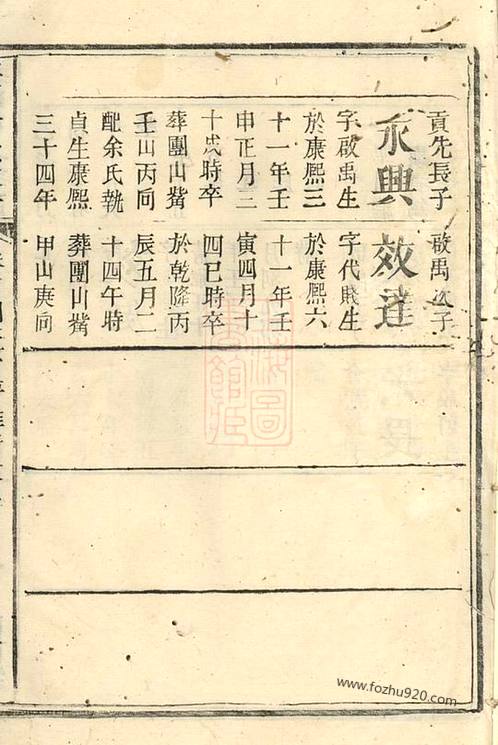 貢先長子
永興
字啟禹生
於康熙三
十一年壬
申正月二
十戌時卒
葬團山觜
壬山丙向
配余氏執
貞生康熙
三十四年
啟禹次子
效達
字代賤生
於康熙六
十一年壬
寅四月十
四巳時卒
於乾隆丙
辰五月二
十四午時
葬團山觜
甲山庚向
www.fozhu920.com